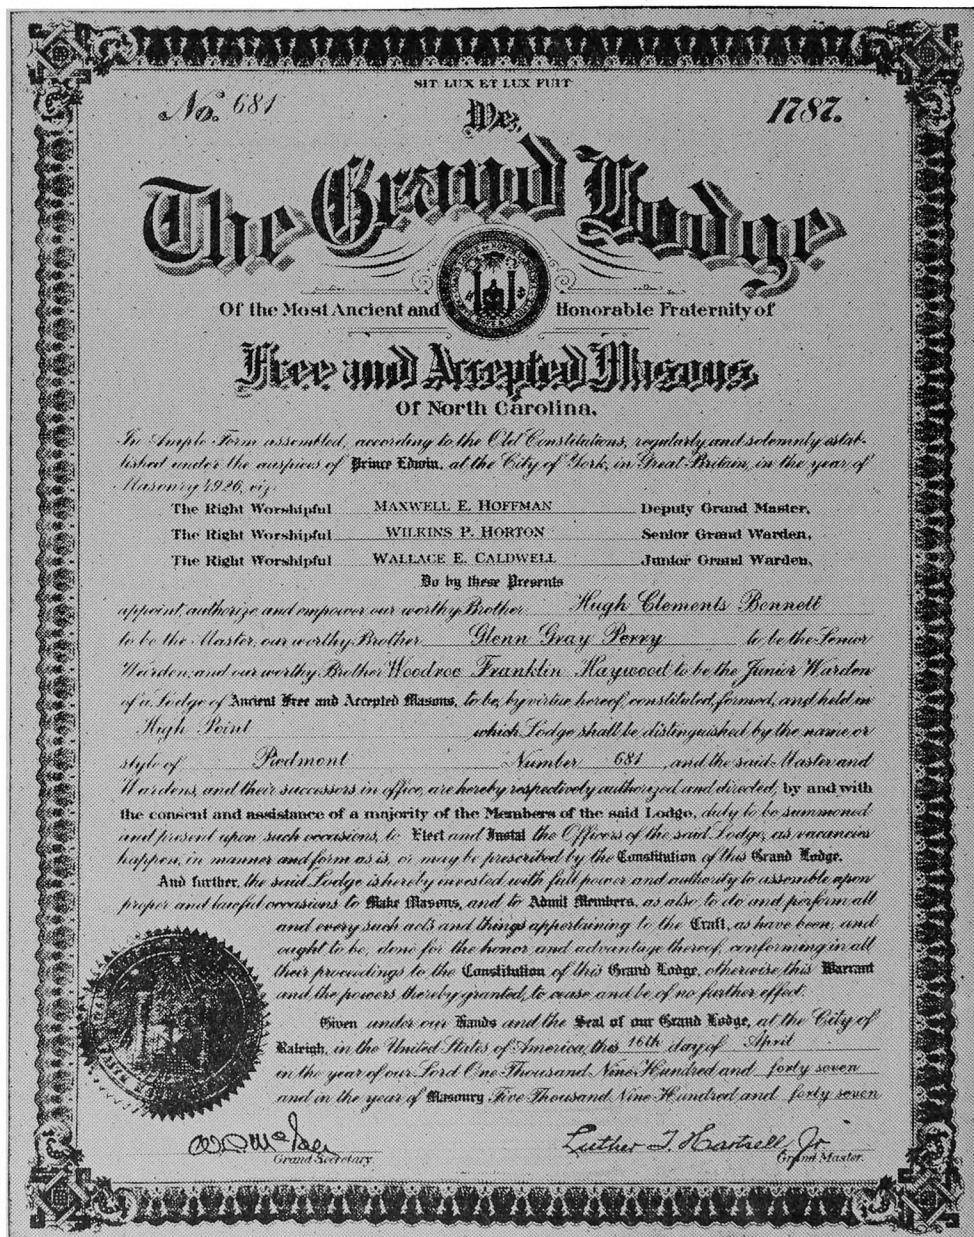 SIT LUX ET LUX FUIT
No. 681
1787.
We,
The Grand Lodge
Of the Most Ancient and Honorable Fraternity of
Free and Accepted Masons
Of North Carolina,
In Ample Form assembled, according to the Old Constitutions, regularly and solemnly estab-
lished under the auspices of Prince Edwin, at the City of York, in Great Britain, in the year of
Masonry 4926, viz:
The Right Worshipful MAXWELL E. HOFFMAN Deputy Grand Master,
The Right Worshipful WILKINS P. HORTON Senior Grand Warden,
The Right Worshipful WALLACE E. CALDWELL Junior Grand Warden,
Do by these Presents
appoint, authorize and empower our worthy Brother Hugh Clements Bennett
to be the Master, our worthy Brother Glenn Gray Perry to be the Senior
Warden, and our worthy Brother Woodroe Franklin Haywood to be the Junior Warden
of a Lodge of Ancient Free and Accepted Masons, to be, by virtue hereof, constituted, formed, and held in
High Point which Lodge shall be distinguished by the name or
style of Piedmont Number 681, and the said Master and
Wardens, and their successors in office, are hereby respectively authorized and directed, by and with
the consent and assistance of a majority of the Members of the said Lodge, duly to be summoned
and present upon such occasions, to Elect and Instal the Officers of the said Lodge, as vacancies
happen, in manner and form as is, or may be prescribed by the Constitution of this Grand Lodge.
And further, the said Lodge is hereby invested with full power and authority to assemble upon
proper and lawful occasions to Make Masons, and to Admit Members, as also to do and perform all
and every such acts and things appertaining to the Craft, as have been, and
ought to be, done for the honor and advantage thereof, conforming in all
their proceedings to the Constitution of this Grand Lodge, otherwise this Warrant
and the powers thereby granted, to cease and be of no further effect.
Given under our Hands and the Seal of our Grand Lodge, at the City of
Raleigh, in the United States of America, this 16th day of April
in the year of our Lord One Thousand Nine Hundred and forty seven
and in the year of Masonry Five Thousand Nine Hundred and forty seven
Luther T. Hartsell, Jr
Grand Secretary.
Grand Master.